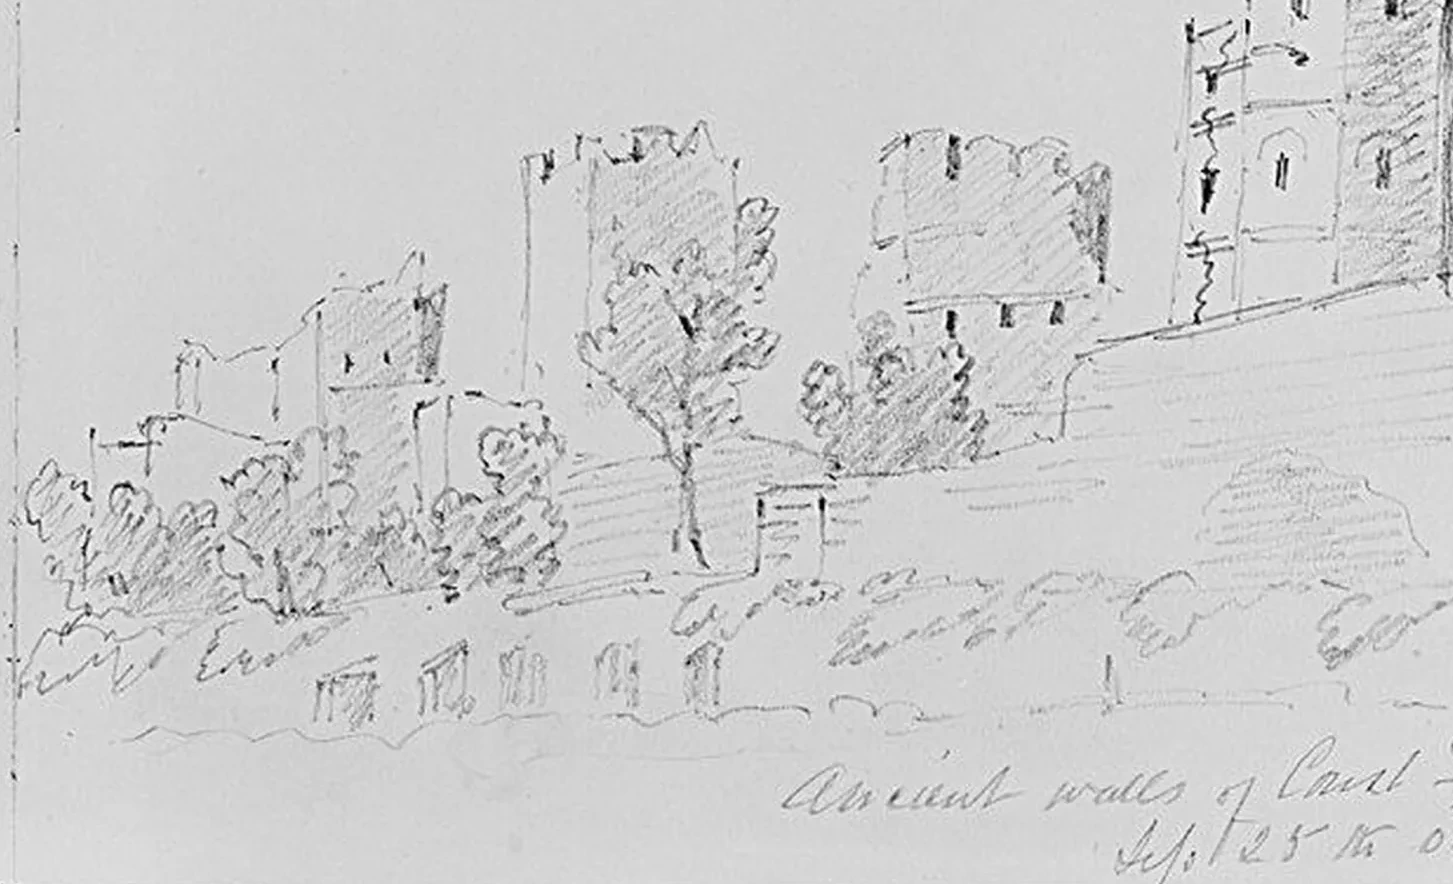 Ancient walls of Const
Sep. 25th